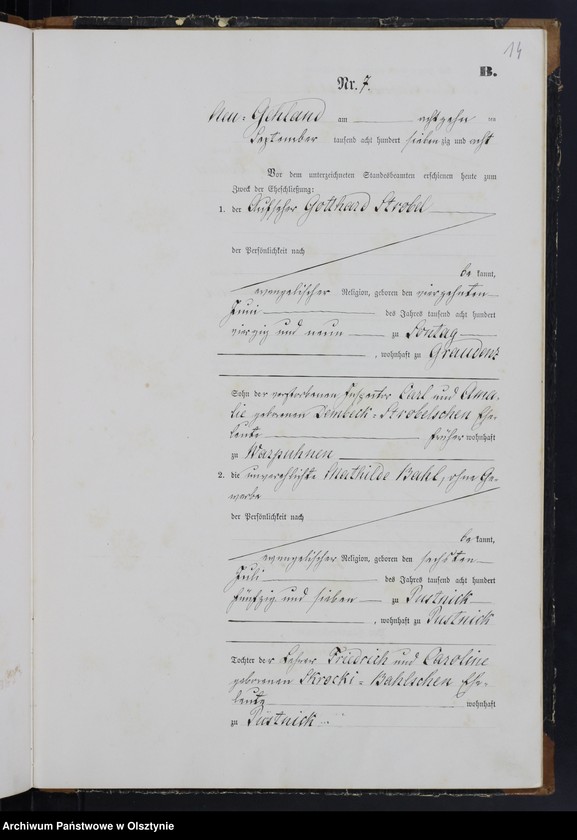 14
B.
Nr. 7.
Neu-Gehland am achtzehn ten
September tausend acht hundert siebenzig und acht
Vor dem unterzeichneten Standesbeamten erschienen heute zum
Zweck der Eheschließung:
1. der Aufseher Gotthard Strobel
der Persönlichkeit nach
be kannt,
evangelischer Religion, geboren den vierzehnten
Juni des Jahres tausend acht hundert
vierzig und neun zu Sontag
, wohnhaft zu Graudenz
Sohn der verstorbenen Inspector Carl und Ama-
lie geborenen Dembeck-Strobelschen Ehe-
leute früher wohnhaft
zu Warpuhnen
2. die unverehlichte Mathilde Bahl, ohne Ge-
werbe
der Persönlichkeit nach
be kannt,
evangelischer Religion, geboren den sechsten
Juli des Jahres tausend acht hundert
fünfzig und sieben zu Pustnick
, wohnhaft zu Pustnick
Tochter der Lehrer Friedrich und Caroline
geborenen Skrocki-Bahlschen Ehe-
leute wohnhaft
zu Pustnick.
Archiwum Państwowe w Olsztynie